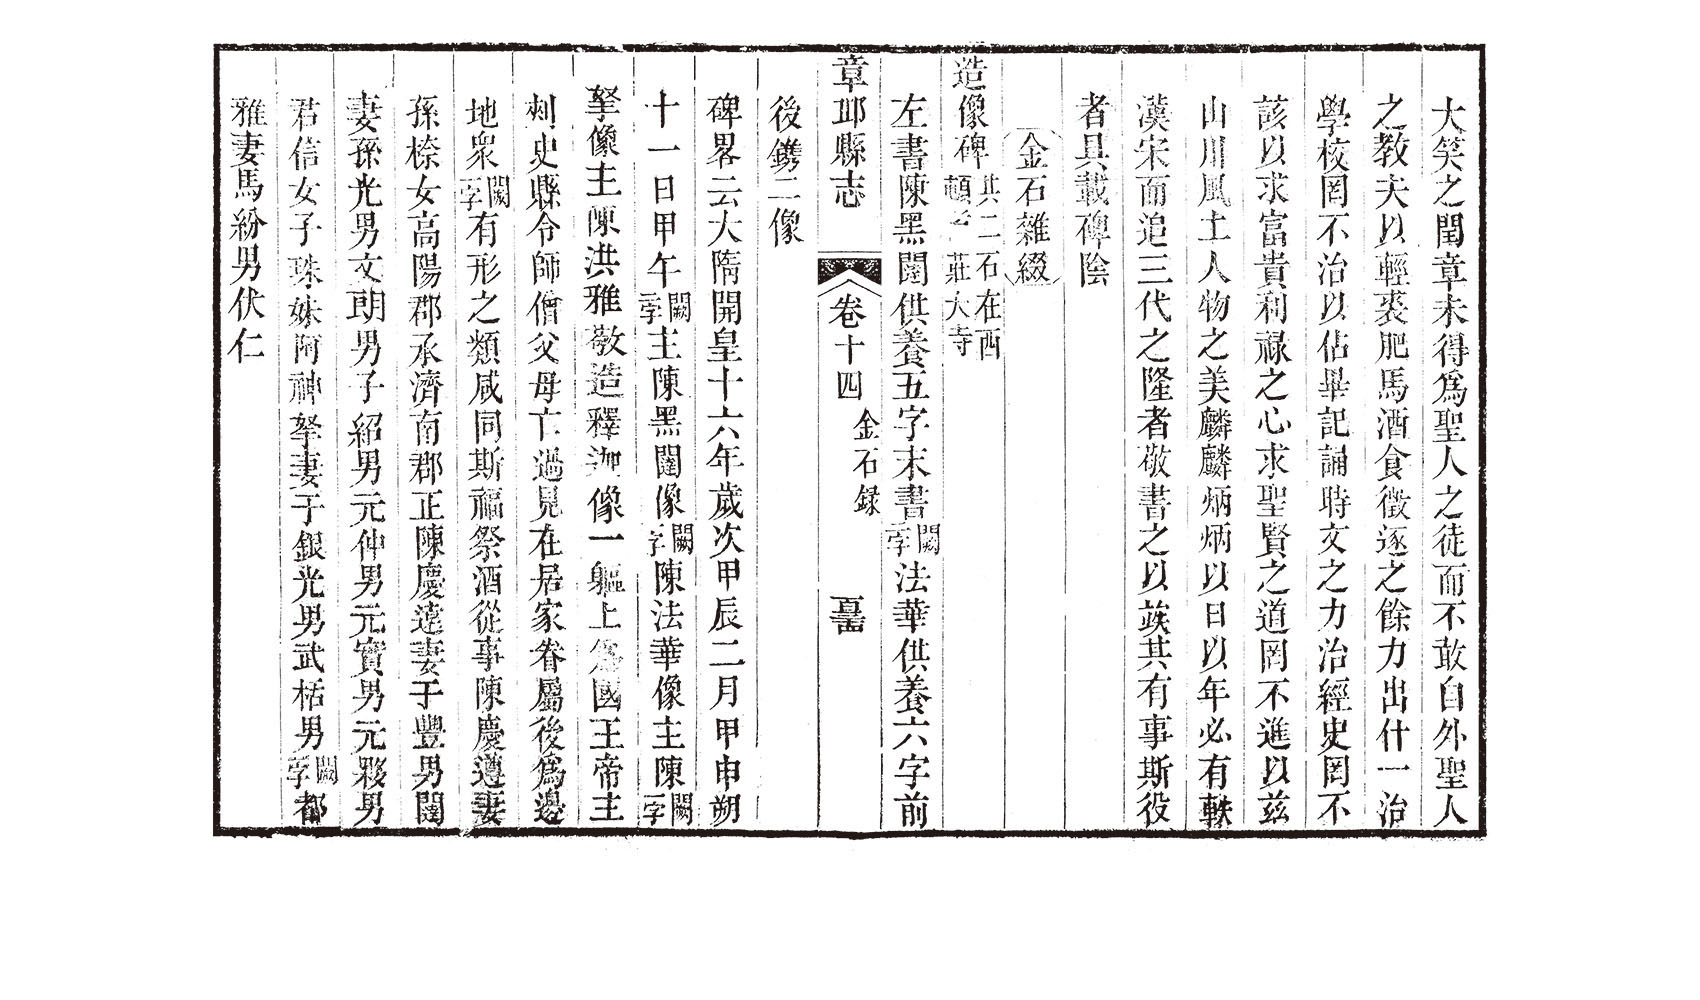 大笑之閏章未得爲聖人之徒而不敢自外聖人
之教夫以輕裘肥馬酒食徵逐之餘力出什一治
學校罔不治以佔畢記誦時文之力治經史罔不
該以求富貴利祿之心求聖賢之道罔不進以茲
山川風土人物之美麟麟炳炳以日以年必有軼
漢宋而追三代之隆者敬書之以竢其有事斯役
者具載碑陰
金石雜綴
造像碑
共二石在西
頓 莊大寺
左書陳黑闥供養五字末書
闕
一字
法華供養六字前
章邱縣志
卷十四
金石録
後鐫二像
碑畧云大隋開皇十六年歲次甲辰二月甲申朔
十一日甲午
闕
一字
主陳黑闥像
闕
字
陳法華像主陳
闕
一字
拏像主陳洪雅敬造釋迦像一軀上爲國王帝主
刺史縣令師僧父母亡過見在居家眷屬後爲邊
地衆
闕
字
有形之類咸同斯福祭酒從事陳慶遵妻
孫樑女高陽郡承濟南郡正陳慶遠妻于豐男闥
妻孫光男文朗男子紹男元仲男元寶男元夥男
君信女子珠妹阿神拏妻于銀光男武栝男
闕
一字
都
雅妻馬紛男伏仁